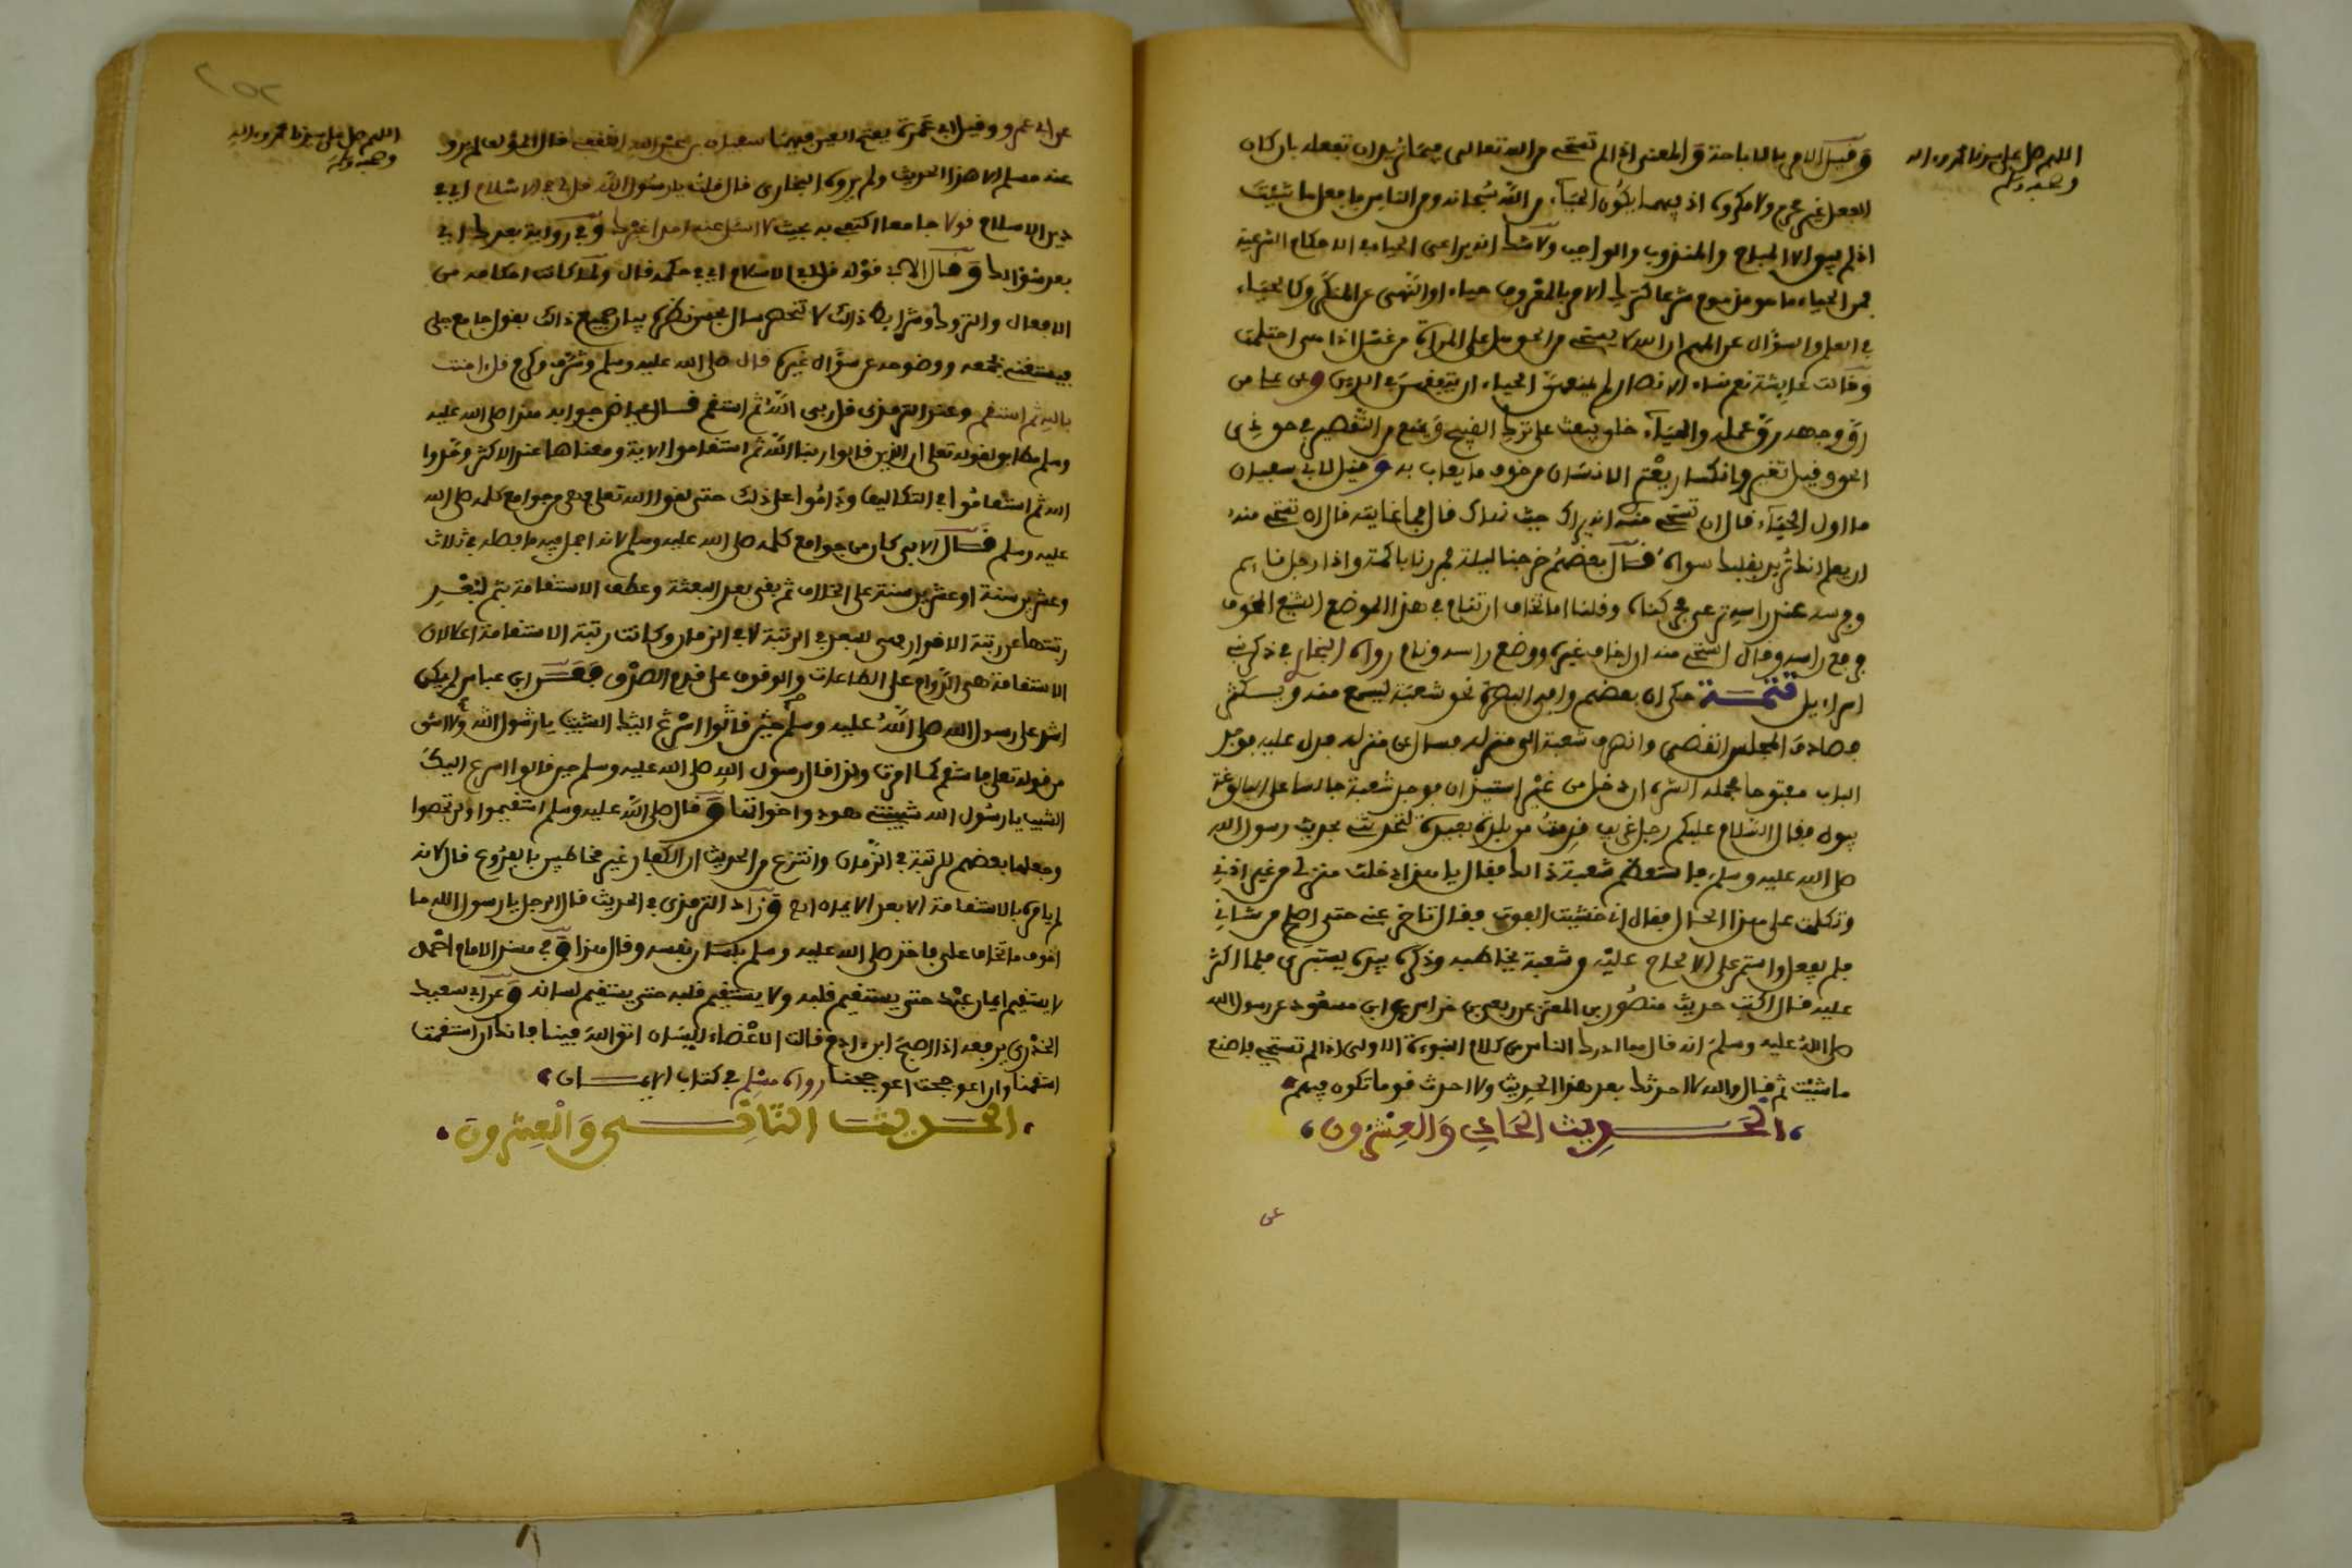 اللهم صل على سيدنا محمد وءاله
وصحبه وسلم
وقيل الامر بالاباحة والمعنى اذا لم تستحي من الله تعالى فيما تريد ان تفعله بان كان
الفعل غير محرم ولا مكروه اذ فيهما يكون الحياء من الله سبحانه ومن الناس فافعل ما شئت
اذ لم يبق الا المباح والمندوب والواجب ولا شك انه يراعى الحياء في الاحكام الشرعية
فمن الحياء ما هو مذموم شرعا كترك الامر بالمعروف حياء او النهي عن المنكر وكالحياء
في العلم والسؤال عن المهم ان الله لا يستحي من الحق هل على المراة من غسل اذا هي احتلمت
وقالت عايشة نعم نساء الانصار لم يمنعهن الحياء ان يتفقهن في الدين وعن
رق وجهه رق عمله والحياء خلق يبعث على ترك القبيح ويمنع من التقصير في حق ذي
الحق وقيل تغير وانكسار يعتري الانسان من خوف ما يعاب به وقيل لابي سعيدان
ما اول الحياء قال ان تستحي منه انه يراك حيث نهاك قال فما غايته قال ان تستحي منه
ان يعلم انك تريد بقلبك سواه قال بعضهم خرجنا ليلة فمررنا باكمة واذا رجل نايم
وفرسه عند راسه ترعى فحركناه وقلنا اما تخاف ان تنام في هذا الموضع الشبع المخوف
فرفع راسه وقال استحي منه ان اخاف غيره ووضع راسه ونام رواه البخاري في ذكر بني
اسراءيل تتمة حكى ان بعضهم وافى البصرة نحو شعبة ليسمع منه ويستكثر
فصادف المجلس انقضى وانصرف شعبة الى منزله فسال عن منزله فدل عليه فوجد
الباب مفتوحا فحمله الشره ان دخل من غير استيذان فوجد شعبة جالسا على البالوعة
يبول فقال السلام عليكم رجل غريب قدمت من بلدة بعيدة لتحدثني بحديث رسول الله
صلى الله عليه وسلم فاستعظم شعبة ذالك فقال يا هذا دخلت منزلي من غير اذني
وتكلمت على هذا الحال فقال اني خشيت الفوت فقال تاخر عني حتى اصلح من شاني
فلم يفعل واستمر على الالحاح عليه وشعبة يخاطبه وذكره بيده يستبري فلما اكثر
عليه قال اكتب حديث منصور بن المعتمر عن ربعي بن خراس عن ابي مسعود عن رسول الله
صلى الله عليه وسلم انه قال مما ادرك الناس من كلام النبوءة الاولى اذا لم تستحي فاصنع
ما شئت ثم قال والله لا احدثك بعد هذا الحديث ولا احدث قوما تكون فيهم
الحديث الحادي والعشرون
عن
اللهم صل على سيدنا محمد وءاله
وصحبه وسلم
عن ابي عمرو وقيل ابي عمرة بفتح العين فيهما سفيان بن عبد الله الثقفي قال المؤلف لم يرو
عنه مسلم الا هذا الحديث ولم يروه البخاري قال قلت يا رسول الله قل لي في الاسلام اي في
دين الاسلام قولا جامعا اكتفي به بحيث لا اسئل عنه احدا غيرك وفي رواية بعدك اي
بعد سؤالك وقال الابي قوله قل لي في الاسلام اي في حكمه قال ولما كانت احكامه من
الافعال والتروك وشرايط ذلك لا تنحصر سال بحسن نظره بيان جميع ذلك بقول جامع جلي
فيستغني بجمعه ووضوحه عن سؤال غيره قال صلى الله عليه وسلم وشرف وكرم قل ءامنت
بالله ثم استقم وعند الترمذي قل ربي الله ثم استقم قال عياض جوابه هذا صلى الله عليه
وسلم مطابق لقوله تعلى ان الذين قالوا ربنا الله ثم استقاموا الاية ومعناها عند الاكثر وحدوا
الله ثم استقاموا في التكاليف وداموا على ذلك حتى لقوا الله تعلى فهي من جوامع كلمه صلى الله
عليه وسلم قال الابي كان من جوامع كلمه صلى الله عليه وسلم لانه اجمل فيه ما فصله في ثلاث
وعشرين سنة او عشرين سنة على الخلاف ثم بقي بعد البعثة وعطف الاستقامة بثم لبعد
رتبتها عن رتبة الاقرار فهي للبعد في الرتبة لا في الزمان وكانت رتبة الاستقامة اعلا لان
الاستقامة هي الدوام على الطاعات والوقوف على قدم الصدق ففسر ابن عباس لم يكن
اشد على رسول الله صلى الله عليه وسلم حين قالوا اسرع اليك الشيب يا رسول الله ولا اشق
من قوله تعلى فاستقم كما امرت ولذا قال رسول الله صلى الله عليه وسلم حين قالوا اسرع اليك
الشيب يا رسول الله شيبتني هود واخواتها وقال صلى الله عليه وسلم استقيموا ولن تحصوا
وجعلها بعضهم للرتبة في الزمان وانتزع من الحديث ان الكفار غير مخاطبين بالفروع قال لانه
لم يامره بالاستقامة الا بعد الايمان وزاد الترمذي في الحديث قال الرجل يا رسول الله ما
اخوف ما تخاف علي فاخذ صلى الله عليه وسلم بلسان نفسه وقال هذا وفي مسند الامام احمد
لا يستقيم ايمان عبد حتى يستقيم قلبه ولا يستقيم قلبه حتى يستقيم لسانه وعن ابي سعيد
الخدري يرفعه اذا اصبح ابن ءادم قالت الاعضاء للسان اتق الله فينا فانك ان استقمت
استقمنا وان اعوججت اعوججنا رواه مسلم في كتاب الايمان
الحديث الثاني والعشرون